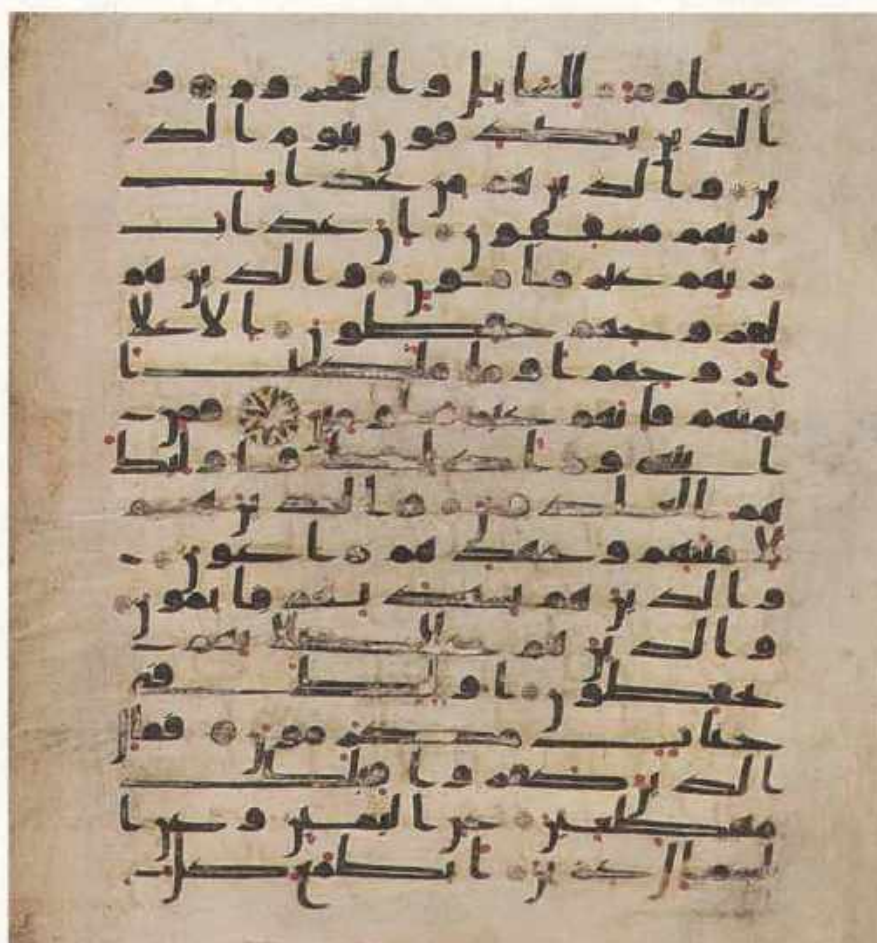 معلوم للسايل والمحروم و
الذين يصدقون بيوم الد
ين والذين هم من عذاب
ربهم مشفقون ان عذاب
ربهم غير مامون والذين هم
لفروجهم حفظون الا علا
ازوجهم او ما ملكت ا
يمنهم فانهم غير ملومين فمن
ابتغى ورا ذلك فاوليك
هم العادون والذين هم
لامنتهم وعهدهم راعون
والذين هم بشهدتهم قايمون
والذين هم على صلاتهم
يحفظون اوليك في
جنات مكرمون فمال
الذين كفروا قبلك
مهطعين عن اليمين وعن ا
لشمال عزين ايطمع كل